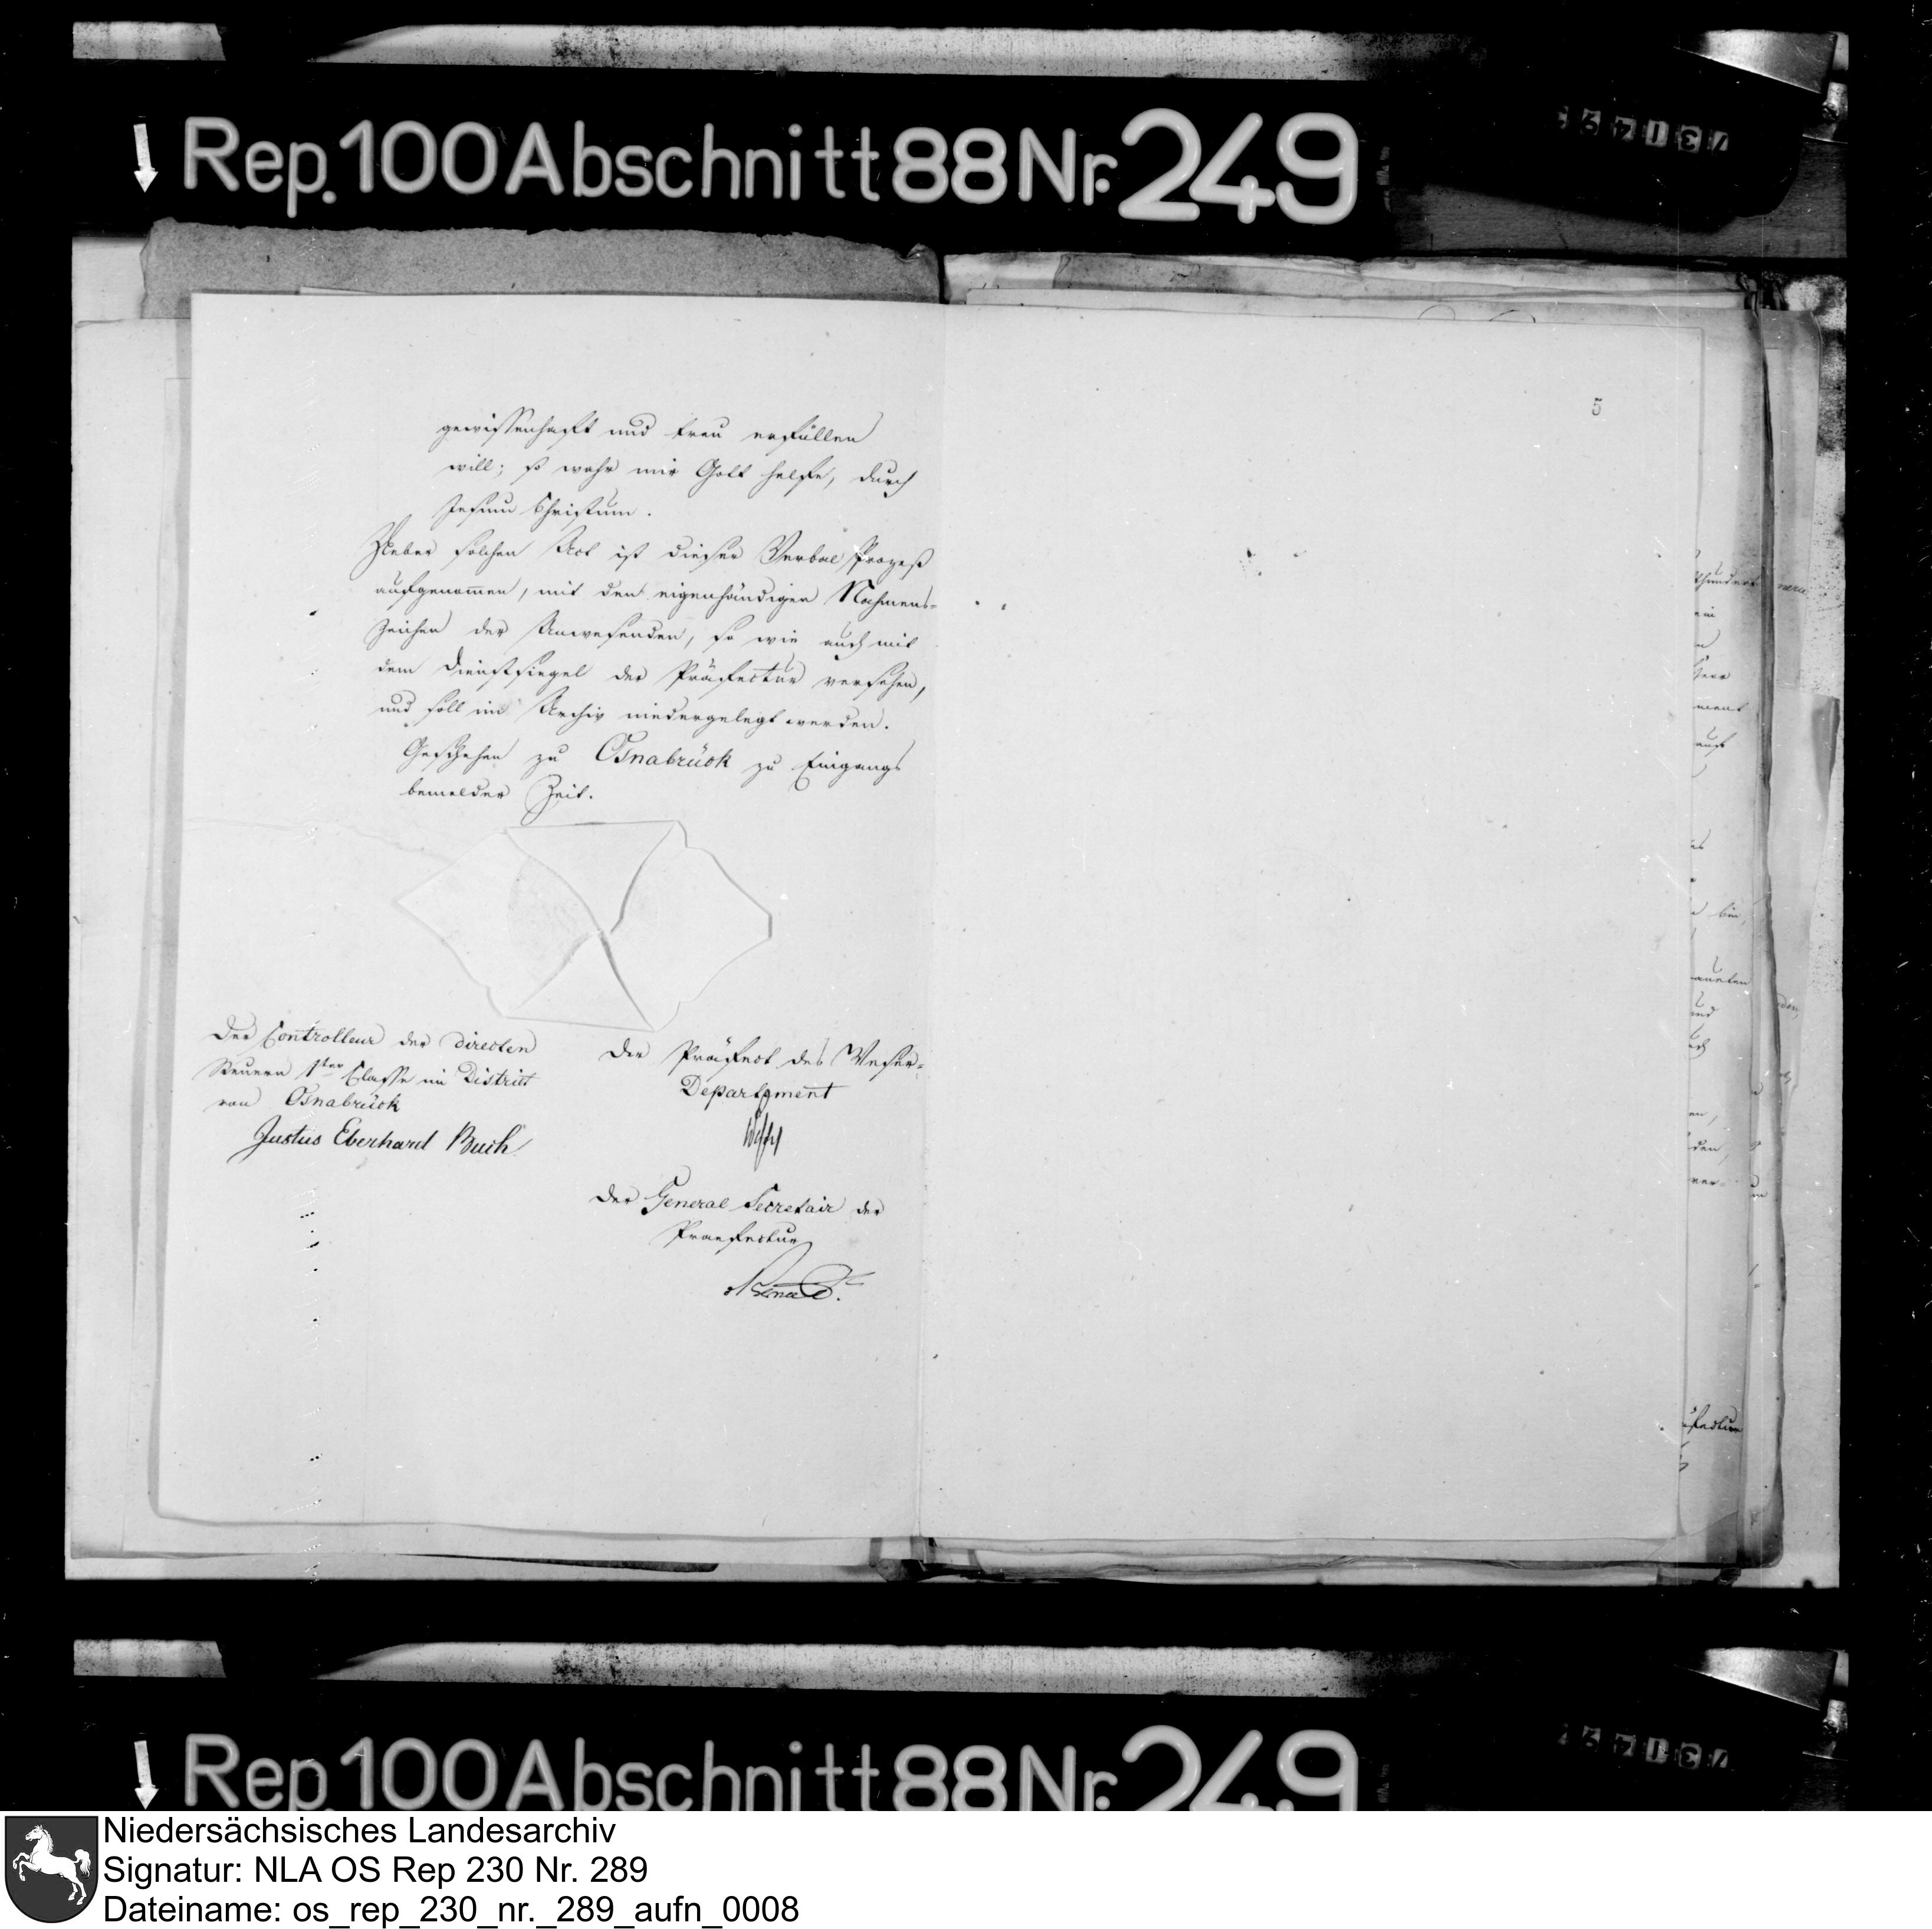 Rep. 100 Abschnitt 88 Nr. 249
gewissenhaft und treu erfüllen
will; so wahr mir Gott helfe, durch
Jesum Christum.
Ueber solchen Act ist dieser Verbal Prozeß
aufgenom̄en, mit den eigenhändigen Nahmens-
zeichen der Anwesenden, so wie auch mit
dem Dienstsiegel der Präfectur versehen,
und soll im Archiv niedergelegt werden.
Geschehen zu Osnabrück zu Eingangs
bemelder Zeit.
Der Controlleur der directen
Steuern 1ster Classe im District
von Osnabrück
Justus Eberhard Buch
Der Präfect des Weser-
Departement
Der General Secretair der
Praefectur
5
Rep. 100 Abschnitt 88 Nr. 249
Niedersächsisches Landesarchiv
Signatur: NLA OS Rep 230 Nr. 289
Dateiname: os_rep_230_nr._289_aufn_0008